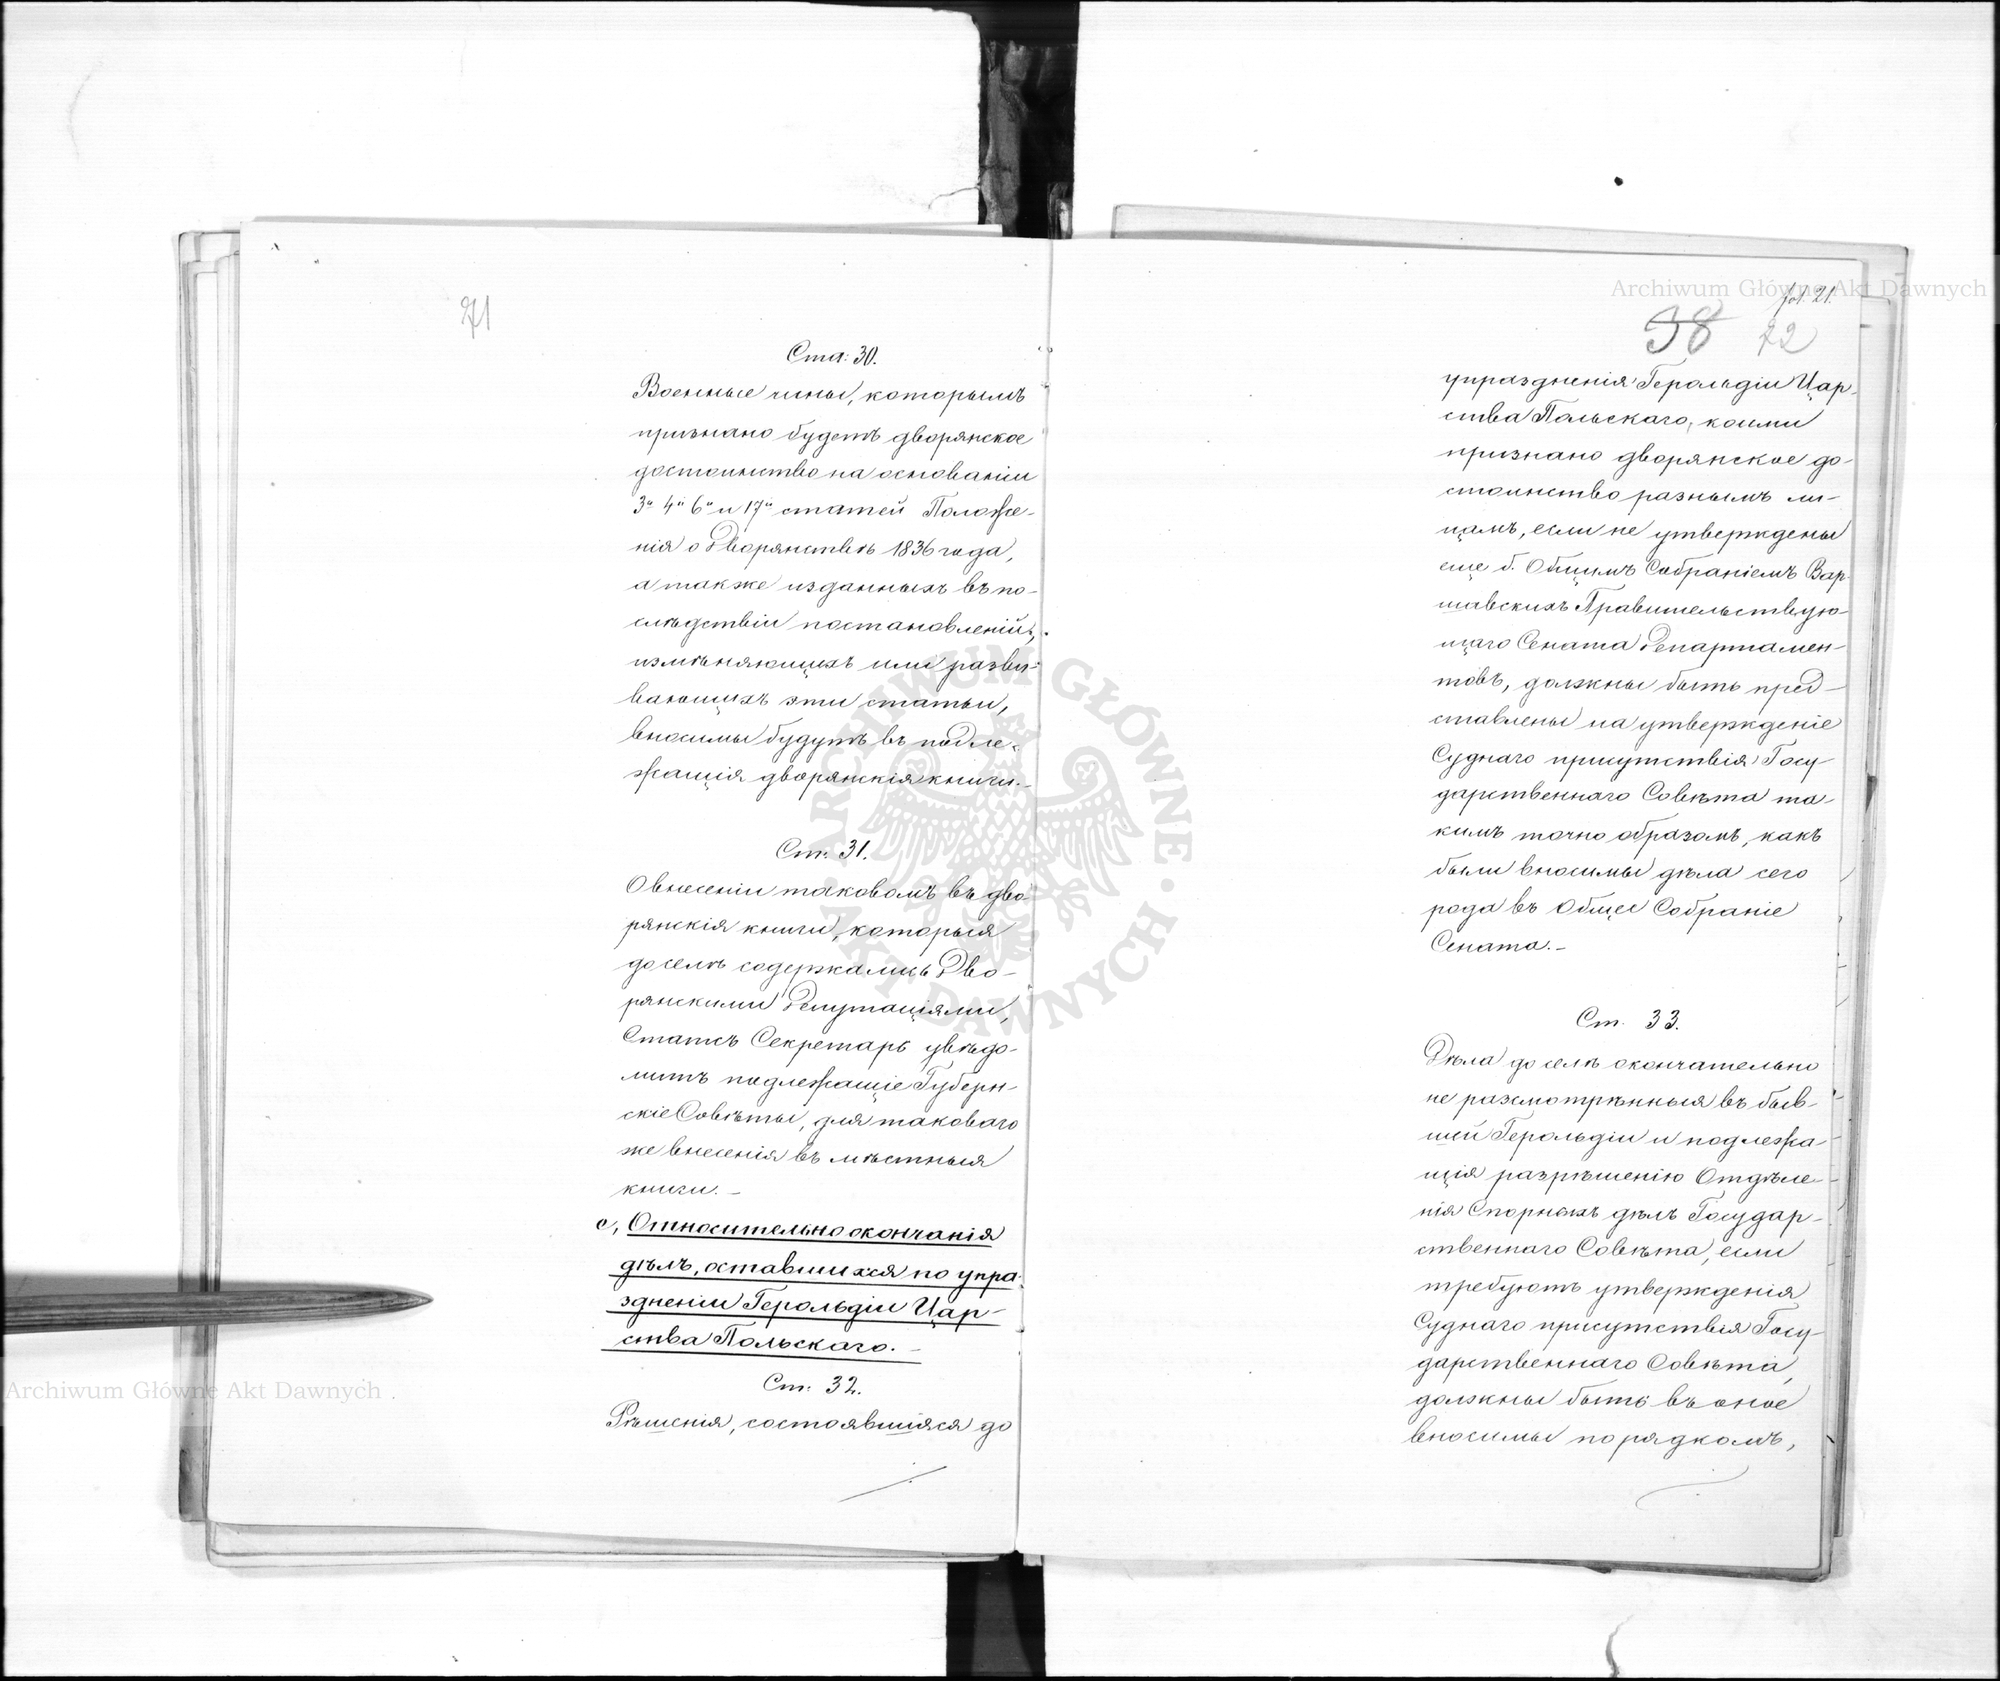 71
Ста: 30.
Военные чины, которымъ
признано будетъ дворянское
достоинство на основаніи
3й 4й 6й и 17й статей Положе-
нія о Дворянствѣ 1836 года,
а также изданныхъ въ по-
слѣдствіи постановленій,
измѣняющихъ или разви-
вающихъ эти статьи,
вносимы будутъ въ подле-
жащія дворянскія книги.-
Ст: 31.
О внесеніи таковомъ въ дво-
рянскія книги, которыя
доселѣ содержались Дво-
рянскими Депутаціями,
Статсъ Секретарь увѣдо-
митъ подлежащіе Губерн-
скіе Совѣты, для таковаго
же внесенія въ мѣстныя
книги.-
с, Относительно окончанія
дѣлъ, оставшихся по упра-
здненіи Герольдіи Цар-
ства Польскаго.-
Ст: 32.
Рѣшенія, состоявшіяся до
Archiwum Główne Akt Dawnych
fol. 21.
38 72
упраздненія Герольдіи Цар-
ства Польскаго, коими
признано дворянское до-
стоинство разнымъ ли-
цамъ, если не утверждены
еще б. Общимъ Собраніемъ Вар-
шавскихъ Правительствую-
щаго Сената Департамен-
товъ, должны быть пред-
ставлены на утвержденіе
Суднаго присутствія Госу-
дарственнаго Совѣта та-
кимъ точно образомъ, какъ
были вносимы дѣла сего
рода въ Общее Собраніе
Сената.-
Ст. 33.
Дѣла доселѣ окончательно
не разсмотрѣнныя въ быв-
шей Герольдіи и подлежа-
щія разрѣшенію Отдѣле-
нія Спорныхъ дѣлъ Государ-
ственнаго Совѣта, если
требуютъ утвержденія
Суднаго присутствія Госу-
дарственнаго Совѣта,
должны быть въ оное
вносимы порядкомъ,
ARCHIWUM GŁÓWNE
AKT DAWNYCH
Archiwum Główne Akt Dawnych